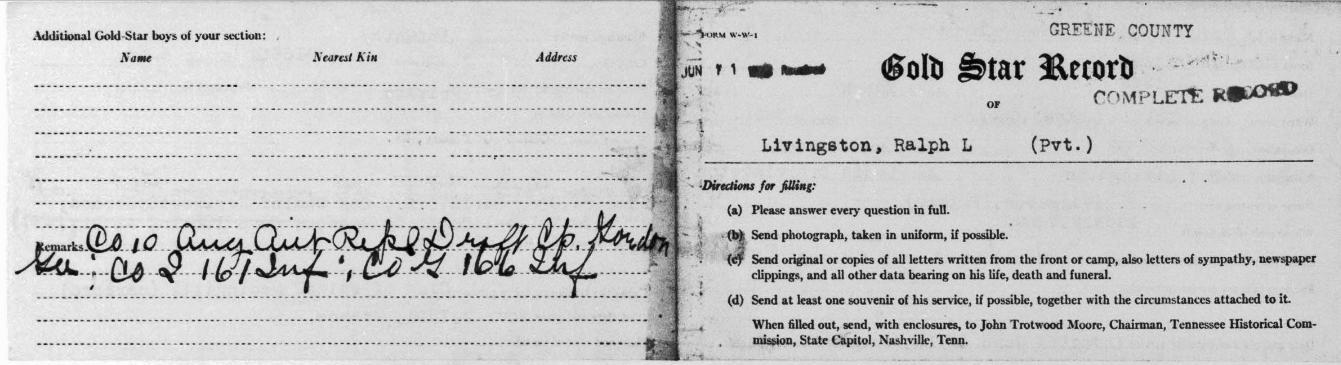 Additional Gold-Star boys of your section:
Name Nearest Kin Address
Remarks Co 10 Aug Aut Repl Draft Cp. Gordon
Ga; Co I 161 Inf; Co G 166 Inf
FORM W-W-1
GREENE COUNTY
JUN 71
Gold Star Record
COMPLETE RECORD
OF
Livingston, Ralph L (Pvt.)
Directions for filling:
(a) Please answer every question in full.
(b) Send photograph, taken in uniform, if possible.
(c) Send original or copies of all letters written from the front or camp, also letters of sympathy, newspaper
clippings, and all other data bearing on his life, death and funeral.
(d) Send at least one souvenir of his service, if possible, together with the circumstances attached to it.
When filled out, send, with enclosures, to John Trotwood Moore, Chairman, Tennessee Historical Com-
mission, State Capitol, Nashville, Tenn.